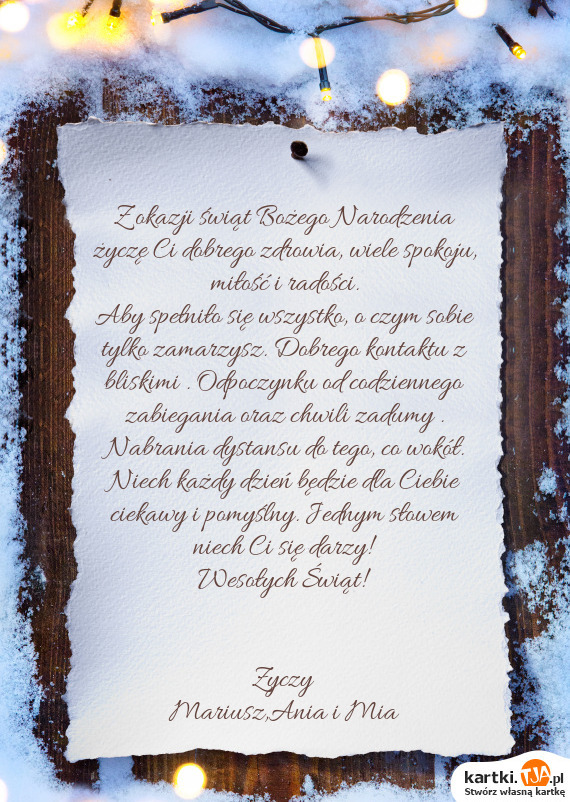 Z okazji świąt Bożego Narodzenia
życzę Ci dobrego zdrowia, wiele spokoju,
miłość i radości.
Aby spełniło się wszystko, o czym sobie
tylko zamarzysz. Dobrego kontaktu z
bliskimi . Odpoczynku od codziennego
zabiegania oraz chwili zadumy .
Nabrania dystansu do tego, co wokół.
Niech każdy dzień będzie dla Ciebie
ciekawy i pomyślny. Jednym słowem
niech Ci się darzy!
Wesołych Świąt!
Zyczy
Mariusz,Ania i Mia
kartki.TJA.pl
Stwórz własną kartkę